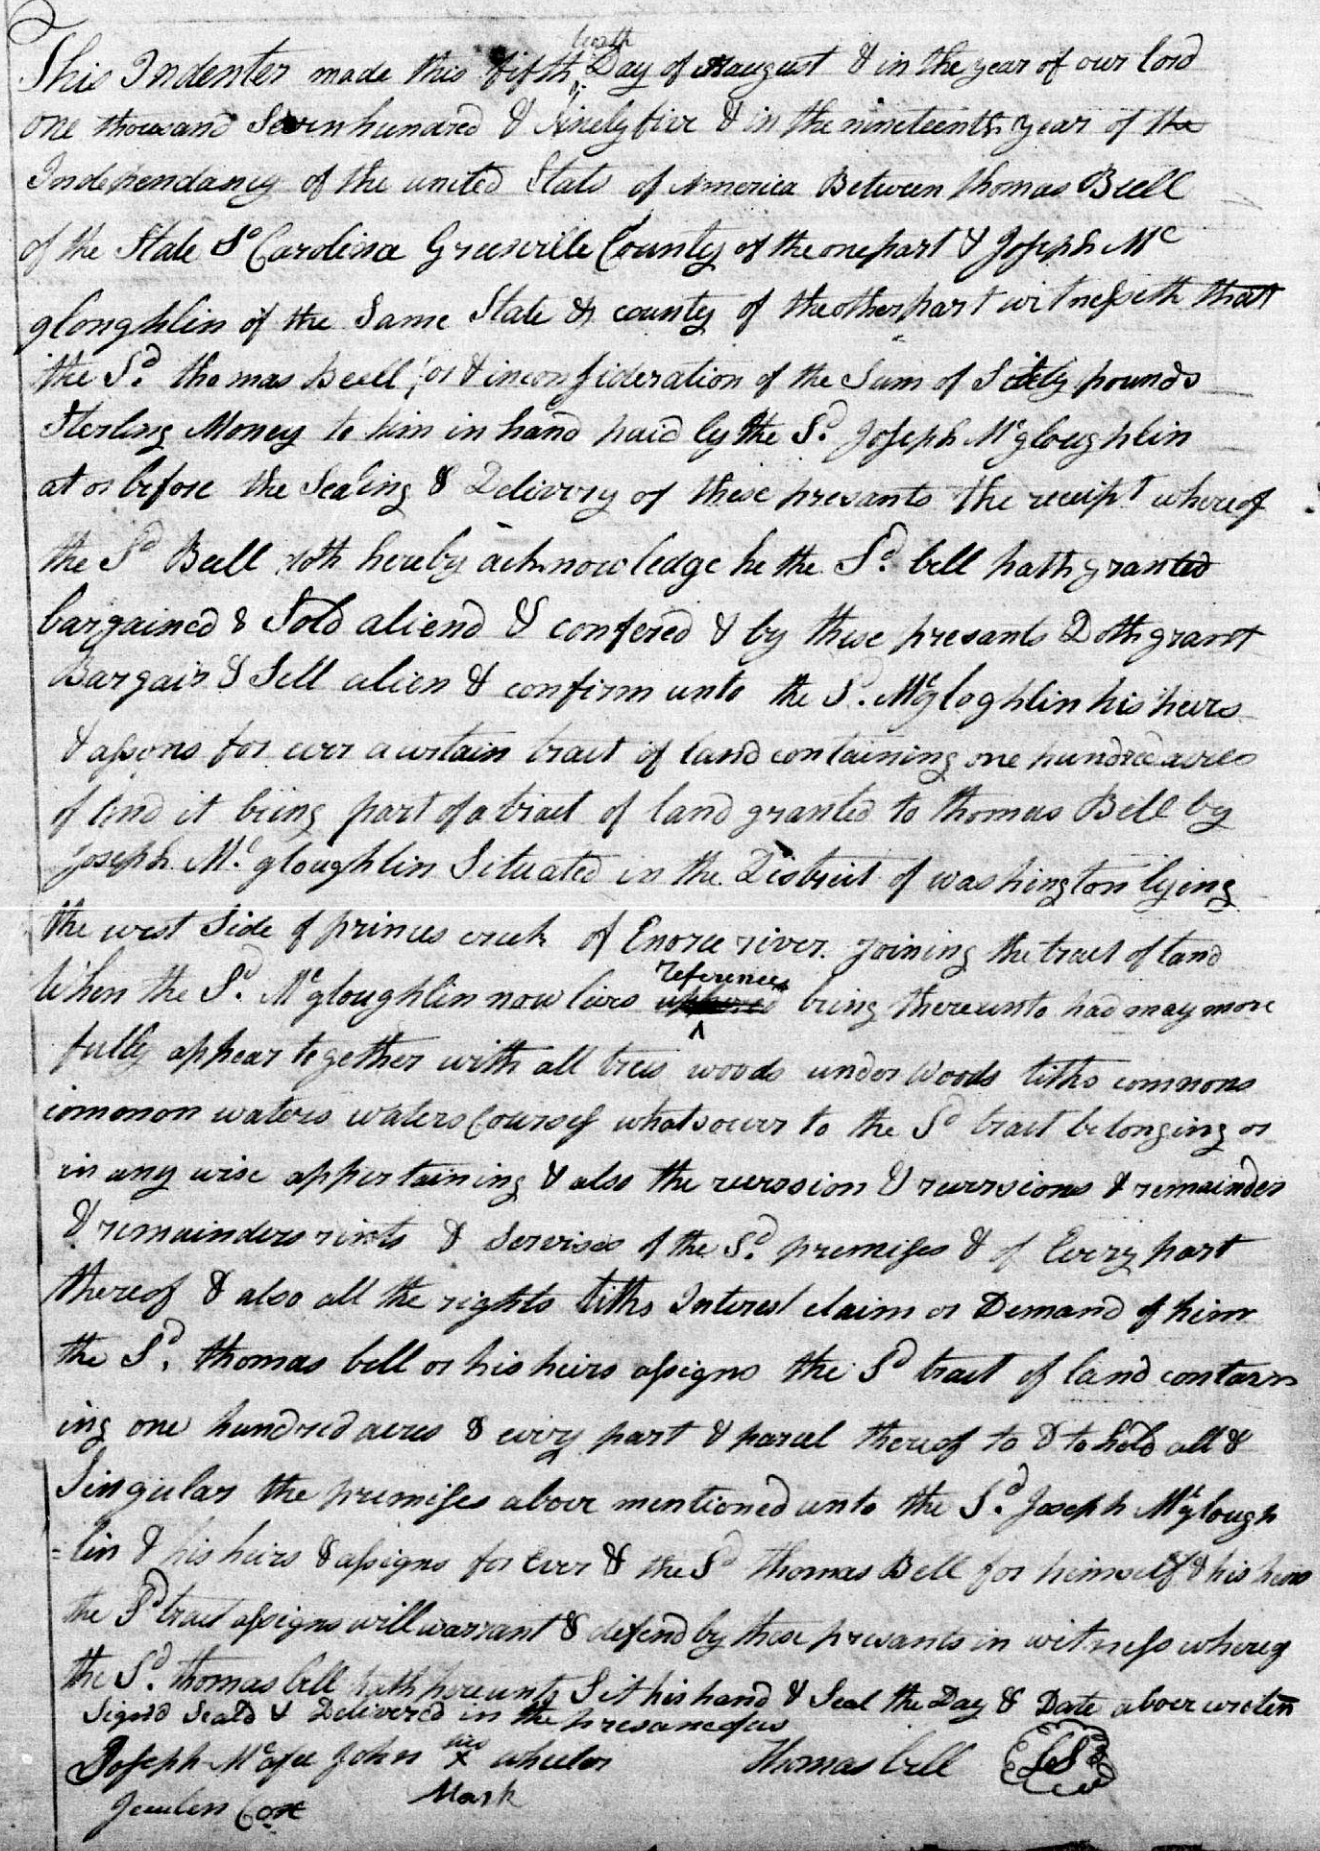 This Indenter made this fifth Day of August & in the year of our lord
one thousand Seven hundred & Ninety five & in the nineteenth year of the
Independancy of the united State of America Between Thomas Beell
of the State So Carolina Greenville County of the one part & Joseph Mc
gloughlin of the Same State & county of the other part witnesseth that
the Sd. thomas Beell for & in consideration of the Sum of Sixty pounds
Sterling Money to him in hand paid by the Sd. Joseph Mcgloughlin
at or before the Sealing & Delivery of these presants the receipt whereof
the Sd Beell doth hereby acknowledge he the Sd. bell hath granted
bargained & Sold aliend & confered & by these presants Doth grant
Bargain & Sell alien & confirm unto the Sd. Mcgloghlin his heirs
& assigns for ever a certain tract of land containing one hundred acres
of land it being part of a tract of land granted to thomas Bell by
Joseph Mcgloughlin Situated in the District of washington lying
the west Side of princes creek of Enoree river joining the tract of land
When the Sd. Mcgloughlin now lives references being thereunto had may more
fully appear together with all trees woods under woods tiths commons
common waters waters Courses whatsoever to the Sd tract belonging or
in any wise appertaining & also the reversion & reversions & remainder
& remainders rents & Services of the Sd. premises & of Every part
thereof & also all the rights tiths Interest claim or Demand of him
the Sd. thomas bell or his heirs assigns the Sd tract of land contain
ing one hundred acres & every part & parcel thereof to & to hold all &
Singular the premises above mentioned unto the Sd. Joseph Mcglough
=lin & his heirs & assigns for Ever & the Sd thomas Bell for himself & his heirs
the Sd tract assigns will warrant & defend by these presants in witness whereof
the Sd. thomas bell hath hereunto Set his hand & Seal the Day & Date above wreten
Signd Seald & Delivered in the presance of us
Joseph Mcafee John his X wheeler Thomas bell LS
Mark
Cox